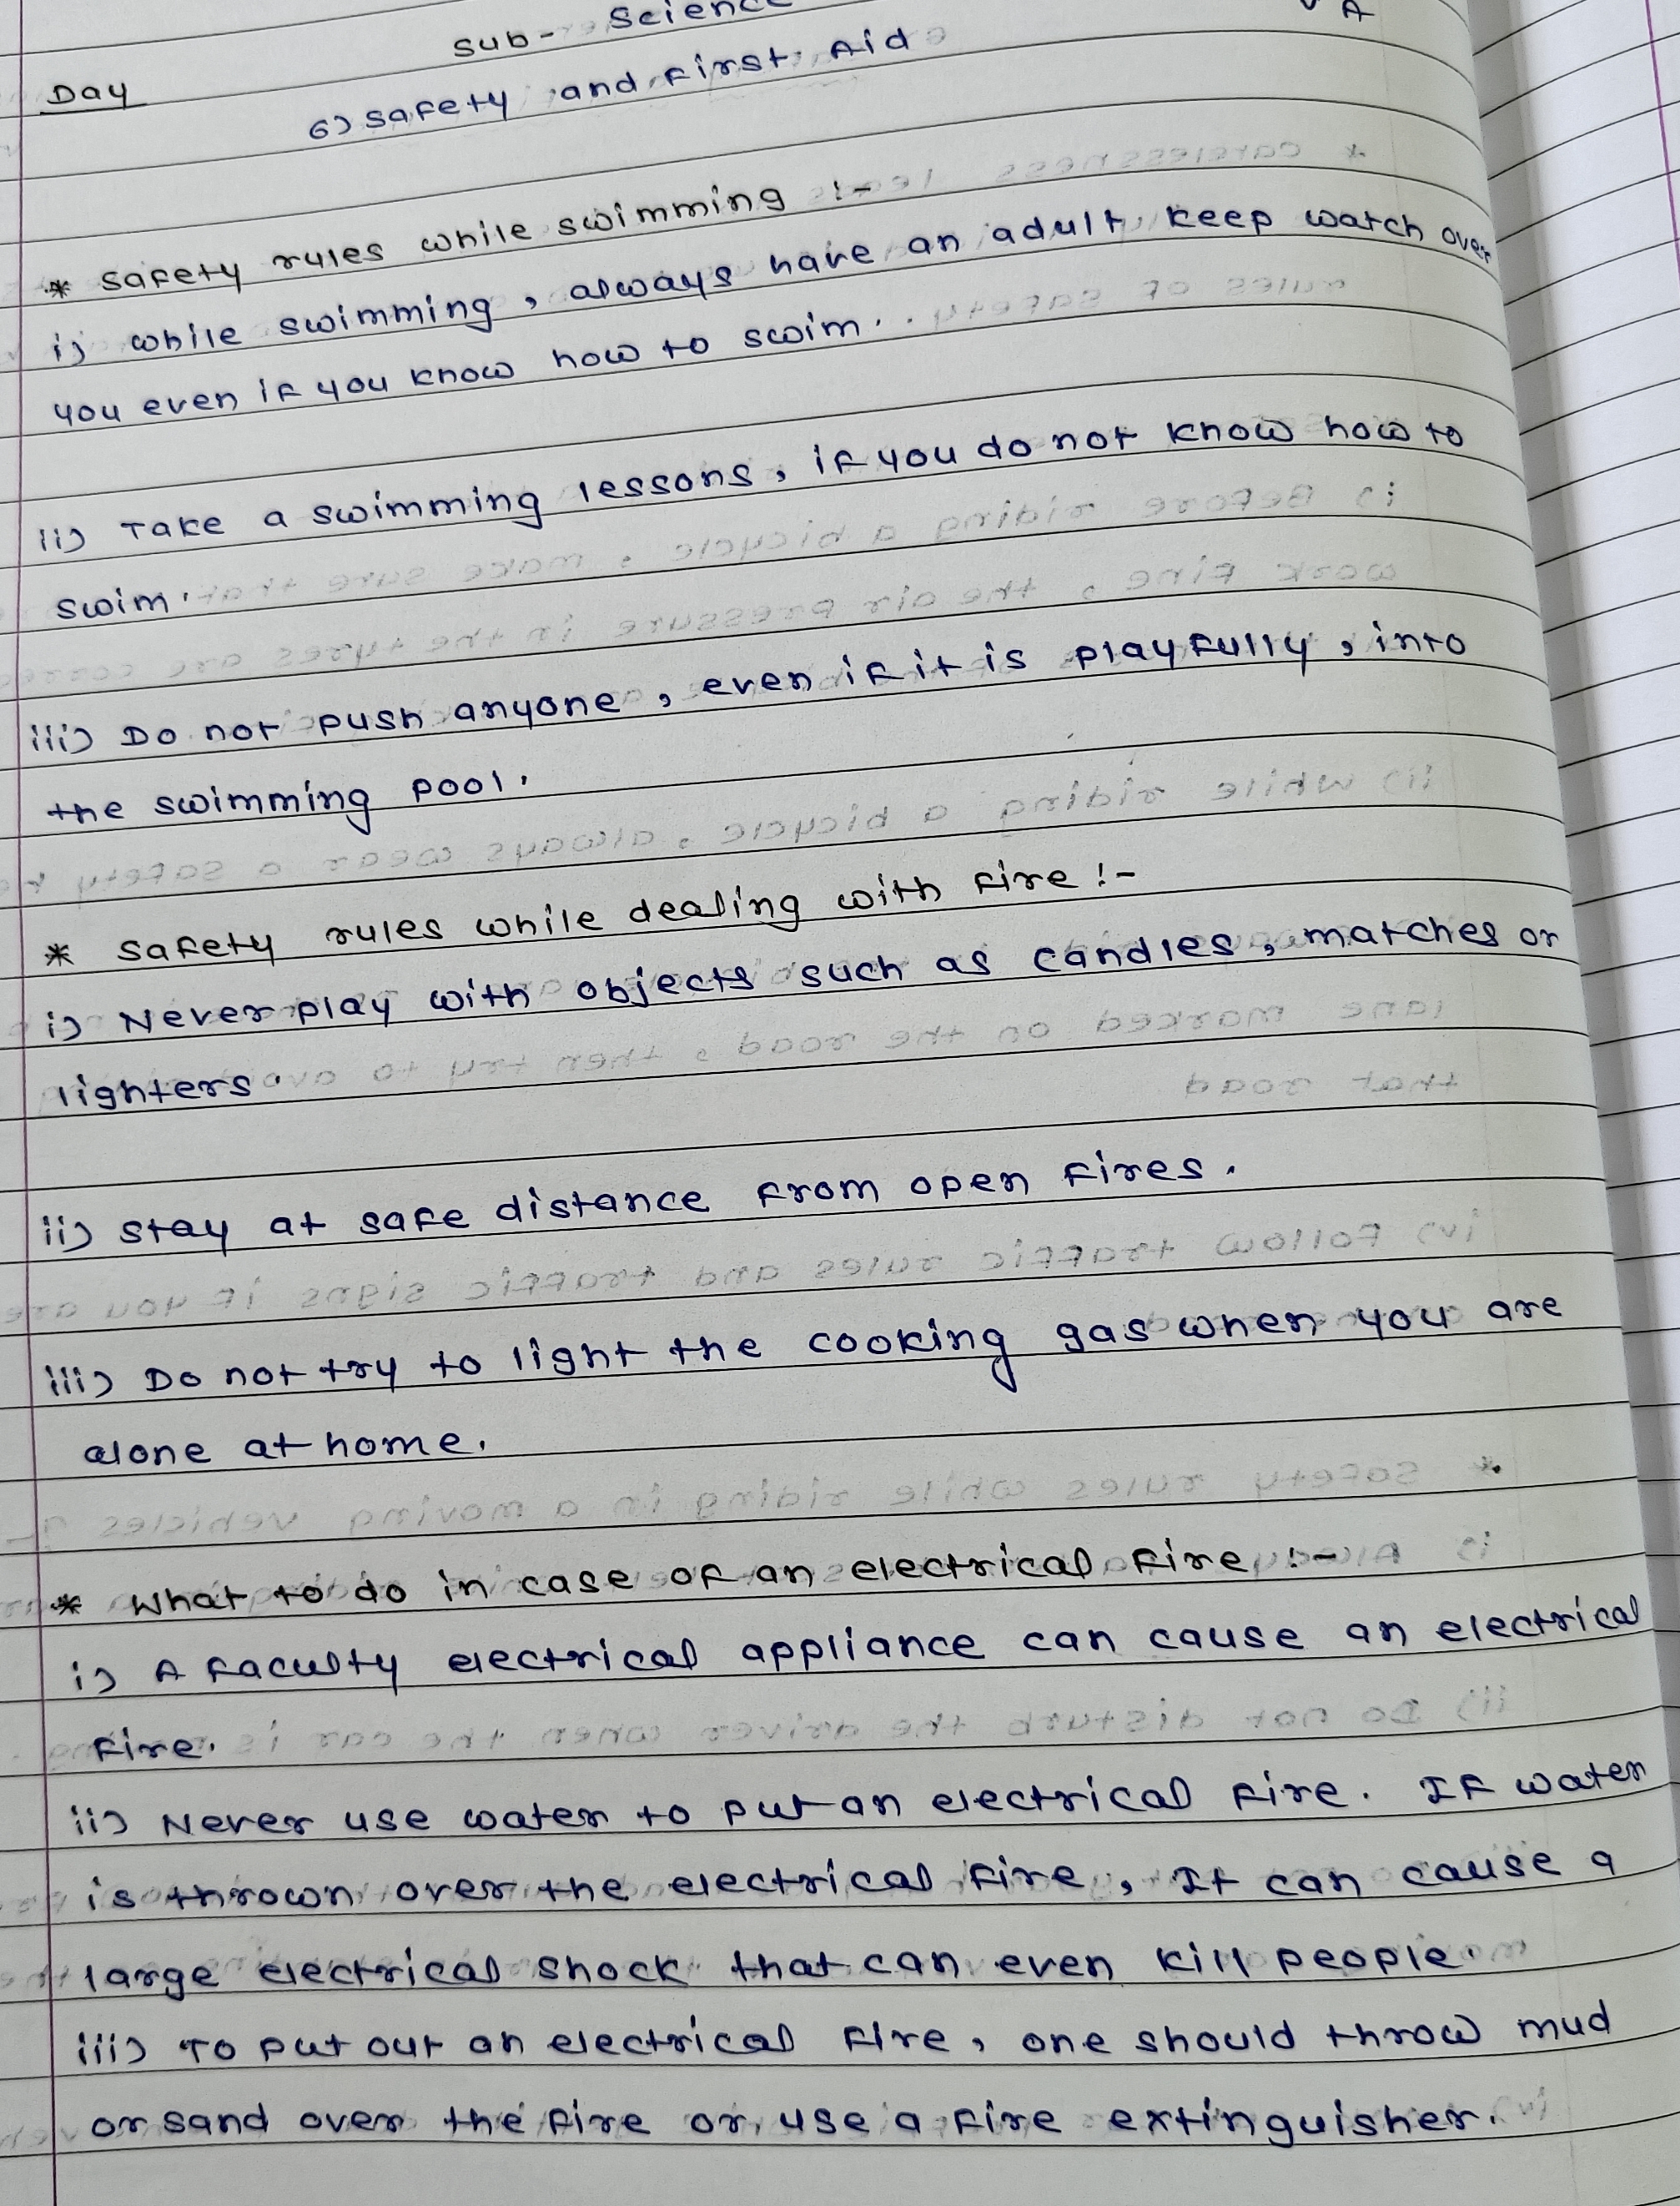 Day
Sub- Science
6) Safety and First Aid
* Safety rules while swimming :-
i) While swimming, always have an adult keep watch over
you even if you know how to swim.
ii) Take a swimming lessons, if you do not know how to
swim.
iii) Do not push anyone, even if it is playfully, into
the swimming pool.
* Safety rules while dealing with fire :-
i) Never play with objects such as candles, matches or
lighters
ii) Stay at safe distance from open fires.
iii) Do not try to light the cooking gas when you are
alone at home.
* What to do in case of an electrical fire :-
i) A faculty electrical appliance can cause an electrical
fire.
ii) Never use water to put an electrical fire. If water
is thrown over the electrical fire, It can cause a
large electrical shock that can even kill people.
iii) To put out an electrical fire, one should throw mud
or sand over the fire or use a fire extinguisher.